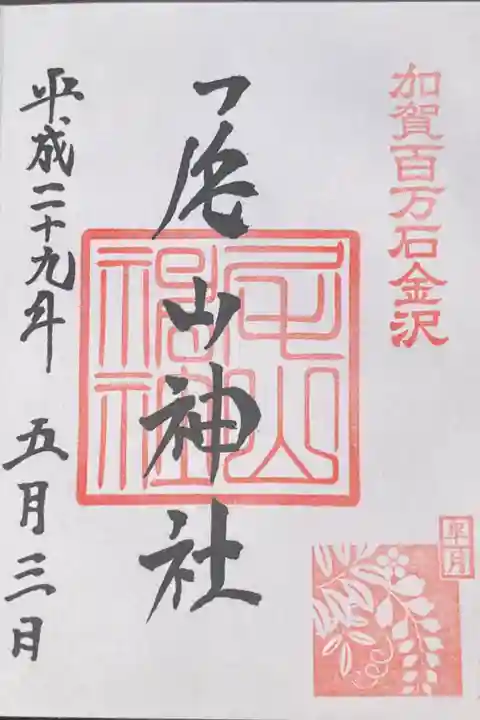 加賀百万石金沢
尾山神社
尾山神社
平成二十九年 五月三日
皐月